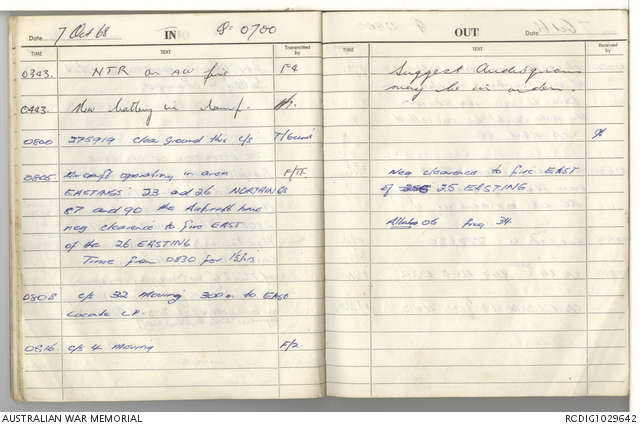 Date 7 Oct 68 IN 0700
TIME TEXT Transmitted by
0343. NTR on AW fire F4
0443. New battery in lamp.
0800 275919 clear ground this c/s
0805 Aircraft operating in area F/TF
EASTINGS 23 and 26 NORTHINGS
87 and 90 the Aircraft have
neg clearance to fire EAST
of the 26 EASTING
Time from 0830 for 1½ hrs
0808 c/s 32 moving 300m to EAST
Locate LP.
0816 c/s 4 moving F/2.
Date OUT
TIME TEXT Received by
Suggest
may be in order.
Neg clearance to fire EAST
of 25 EASTING
06 freq. 34
AUSTRALIAN WAR MEMORIAL
RCDIG1029642